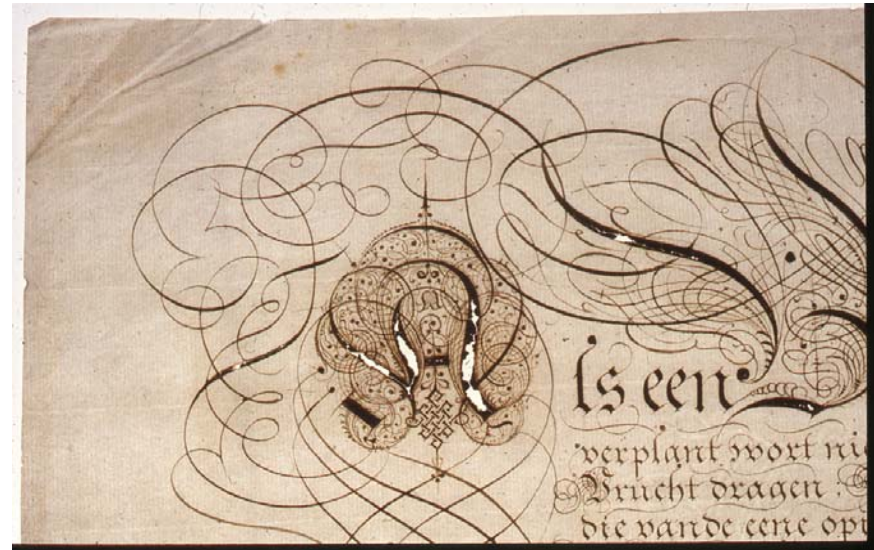 Als een
verplant wort nie
Vrucht dragen:
die vande eene opi